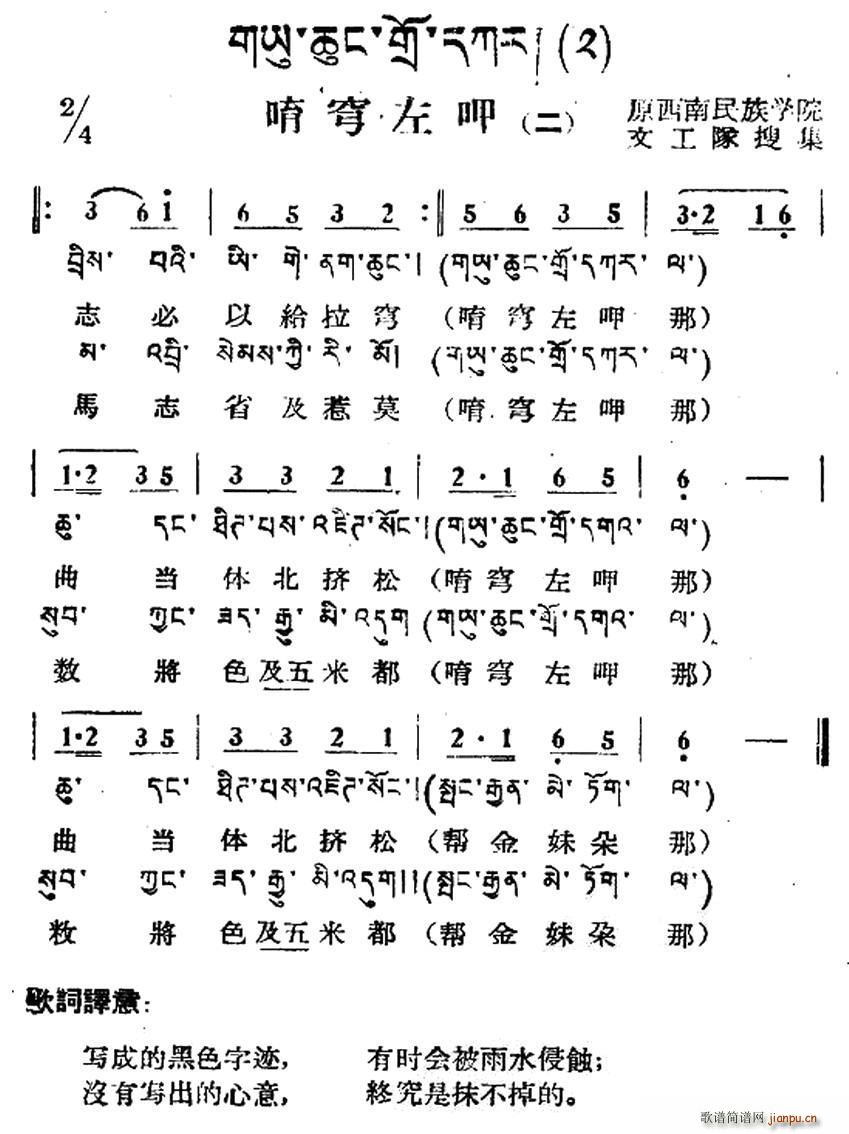 གཡུ་ཆུང་གྲོ་དཀར། (༢)
2/4 唷穹左呷（二） 原西南民族学院
文工隊搜集
3 6 i 6 5 3 2 5 6 3 5 3·2 1 6
བྲིས་ པའི་ ཡི་ གེ་ ནག་ཆུང་། (གཡུ་ཆུང་གྲོ་དཀར་ ལ་)
志 必 以 給 拉 穹 （唷 穹 左 呷 那）
མ་ འབྲི་ སེམས་ཀྱི་ རི་ མོ། (གཡུ་ཆུང་གྲོ་དཀར་ ལ་)
馬 志 省 及 惹 莫 （唷 穹 左 呷 那）
1·2 3 5 3 3 2 1 2·1 6 5 6 —
ཆུ་ དང་ ཐིག་པས་འཇིག་སོང་། (གཡུ་ཆུང་གྲོ་དགའ་ ལ་)
曲 当 体 北 挤 松 （唷 穹 左 呷 那）
སུབ་ ཀྱང་ ཟད་ རྒྱུ་ མི་འདུག (གཡུ་ཆུང་གྲོ་དགའ་ ལ་)
数 將 色 及 五 米 都 （唷 穹 左 呷 那）
1·2 3 5 3 3 2 1 2·1 6 5 6 —
ཆུ་ དང་ ཐིག་པས་འཇིག་སོང་། (སྤང་རྒྱན་ མེ་ ཏོག་ ལ་)
曲 当 体 北 挤 松 （帮 金 妹 朵 那）
སུབ་ ཀྱང་ ཟད་ རྒྱུ་ མི་འདུག།། (སྤང་རྒྱན་ མེ་ ཏོག་ ལ་)
敉 將 色 及 五 米 都 （帮 金 妹 朶 那）
歌詞譯意：
写成的黑色字迹， 有时会被雨水侵蝕；
沒有写出的心意， 終究是抹不掉的。
歌谱简谱网 jianpu.cn